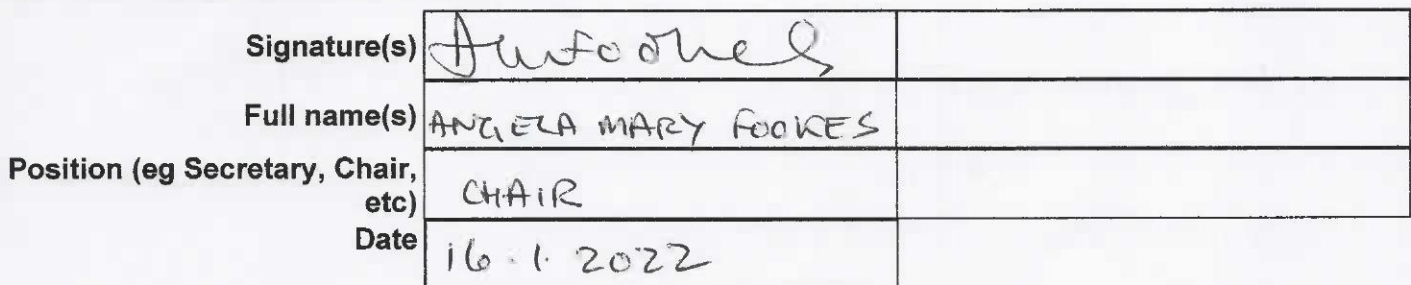 Signature(s) AMFookes
Full name(s) ANGELA MARY FOOKES
Position (eg Secretary, Chair,
etc) CHAIR
Date 16.1.2022